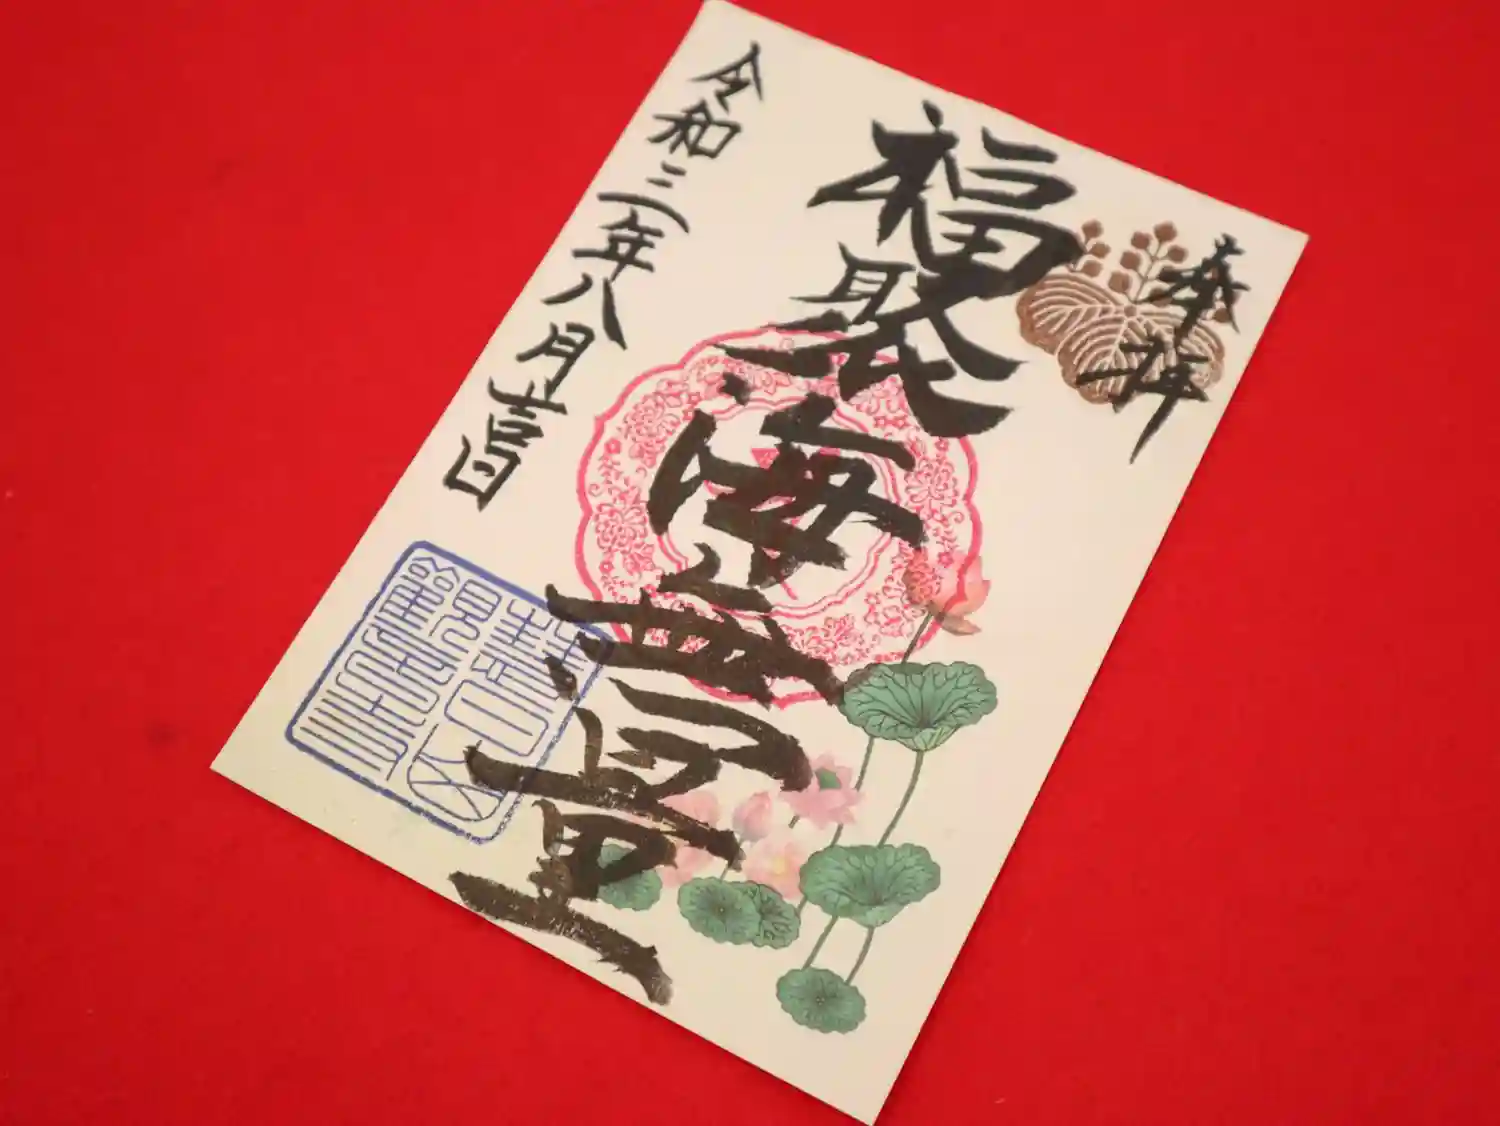 奉拝
福聚海無量
令和三年八月十五日